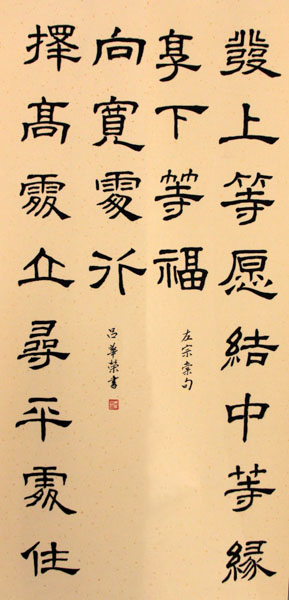 發上等愿結中等緣
享下等福
左宗棠句
擇高處立尋平處住
向寬處行
呂華榮書